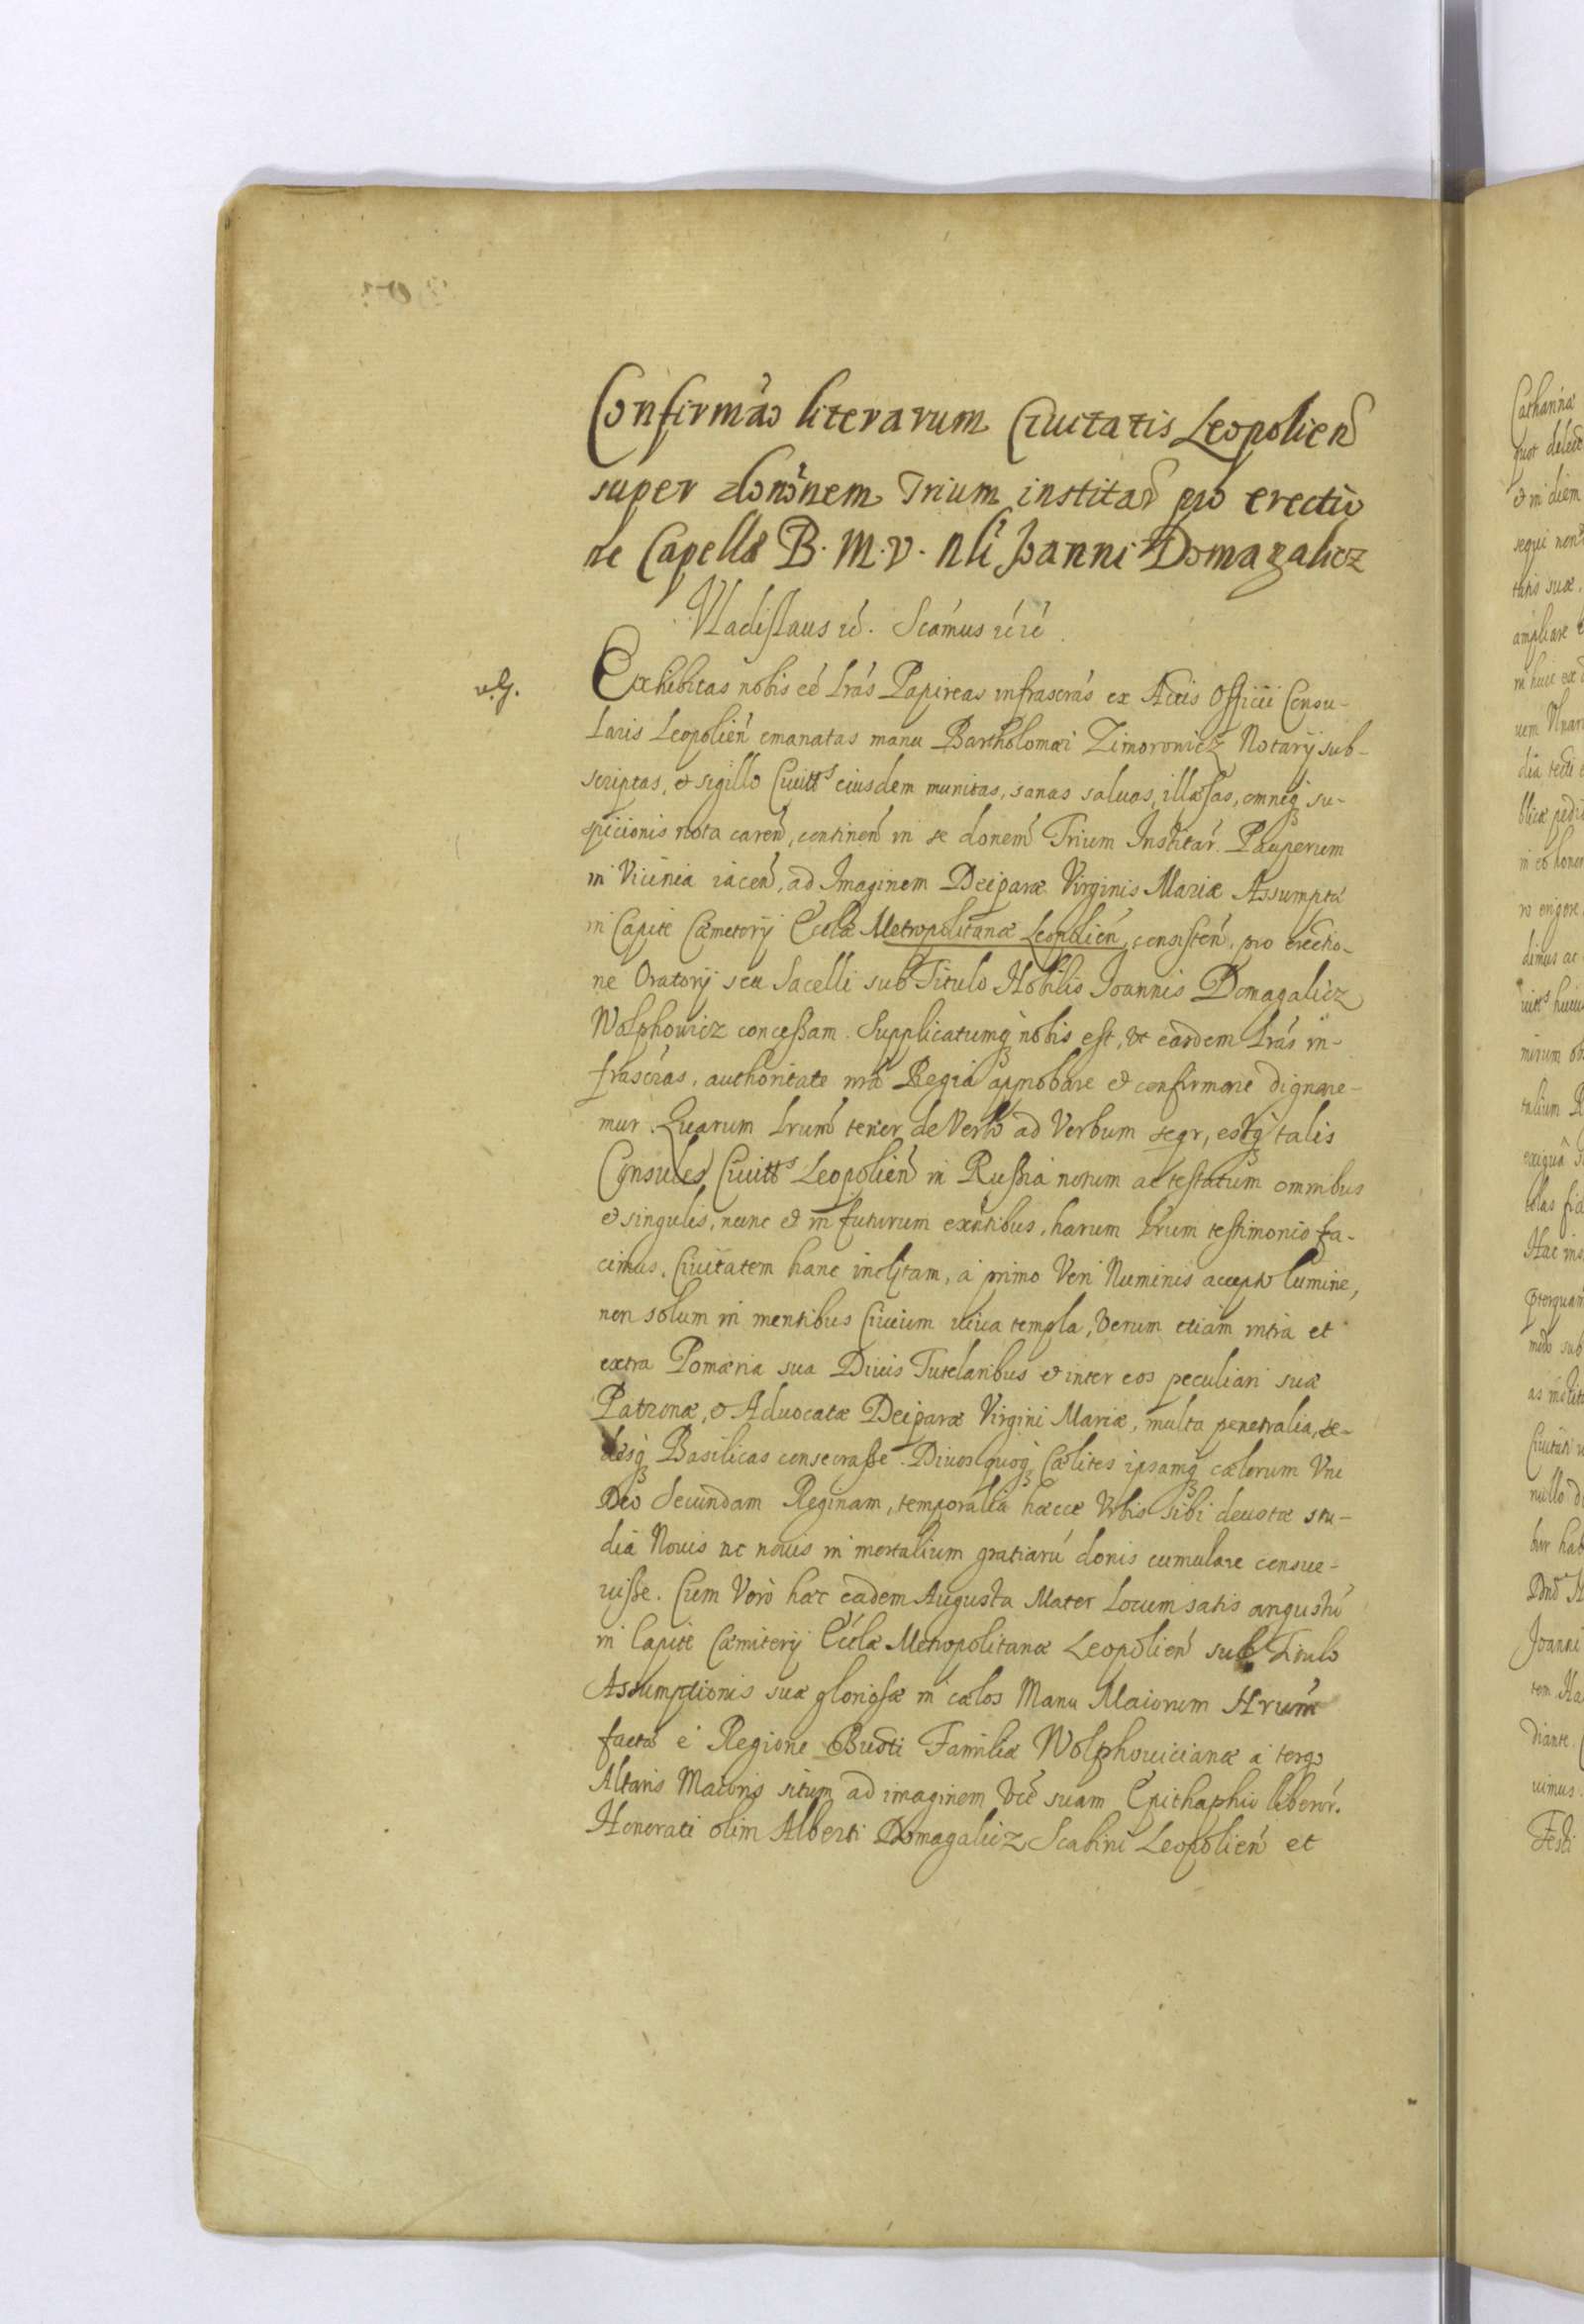 Confirmāo literarum Ciuitatis Leopolien
super donōnem Trium institar pro erectio
ne Capellæ B. M. V. Nli Joanni Domagalicz
Vladislaus rē. Scāmus rērē.
v.g.
Exhibitas nobis eē lrās Papireas infrascrās ex Actis Officii Consu-
laris Leopolień emanatas manu Bartholomæi Zimorowicz Notarij sub-
scriptas, et sigillo Ciuitts eiusdem munitas, sanas saluas, illæsas, omniq3 su-
spicionis nota careń, contineń in se donem̄ Trium Institar. Pauperum
in Vicinia iaceń, ad Imaginem Deiparæ Virginis Mariæ Assumptæ
in Capite Cæmetorij Ecclæ Metropolitanæ Leopolień, consisteń, pro erectio-
ne Oratorij seu Sacelli sub Titulo Nobilis Joannis Domagalicz
Wolphowicz concessam. Supplicatumq3 nobis est, vt easdem lrās in-
frascrās, authoritate nrā Regia approbare et confirmare dignare-
mur. Quarum lrum̄ tenor de Verbo ad Verbum seqr, estq3 talis
Consules Ciuitts Leopolień in Russia notum ac testatum omnibus
et singulis, nunc et in futurum exn̄tibus, harum lrum testimonio fa-
cimus. Ciuitatem hanc inclytam, a primo Veri Numinis accepto lumine,
non solum in mentibus Ciuium viua templa, Verum etiam intra et
extra Pomæria sua Diuis Tutelaribus et inter eos peculiari suæ
Patronæ, et Aduocatæ Deiparæ Virgini Mariæ, multa penetralia, æ-
desq3 Basilicas consecrasse. Diuos quoq3 Cælites ipsamq3 cælorum Vni
Deo Secundam Reginam, temporalia hæcce Vrbis sibi deuotæ stu-
dia Nouis ac nouis in mortalium gratiarū donis cumulare consue-
uisse. Cum Vero hæc eadem Augusta Mater Locum satis angustū
in Capite Cæmiterij Ecclæ Metropolitanæ Leopolień sub Titulo
Assumptionis suæ gloriosæ in cælos Manu Maiorum Nrum̄
facto e Regione Busti Familiæ Wolphouicianæ a tergo
Altaris Maioris situm ad imaginem suam Epithaphio liberor.
Honorati olim Alberti Domagalicz Scabini Leopolień et